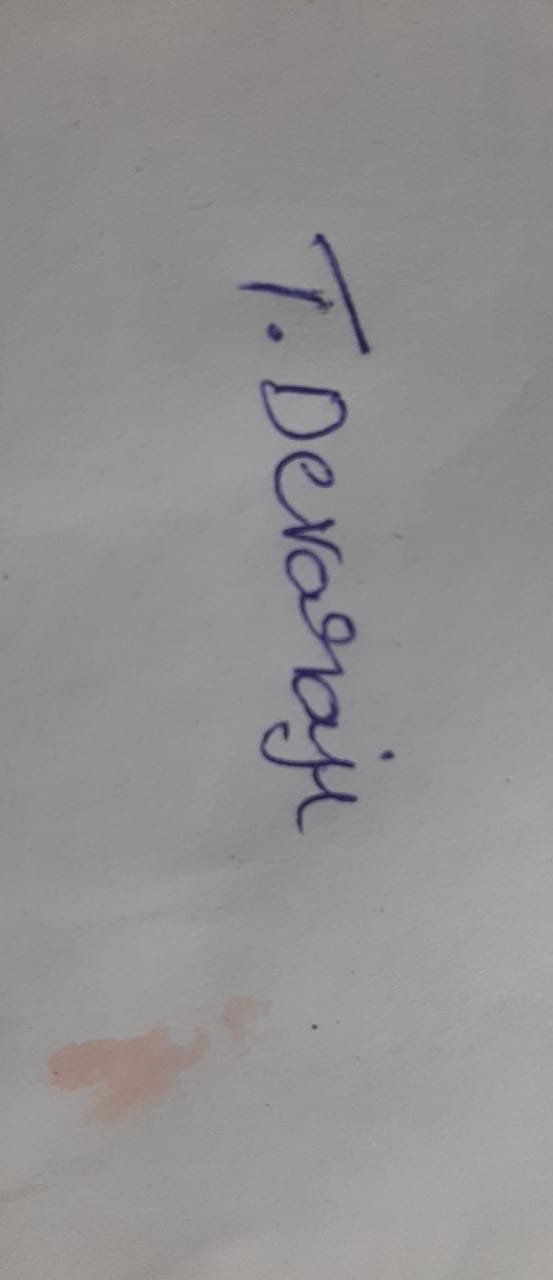 T. Devaraju